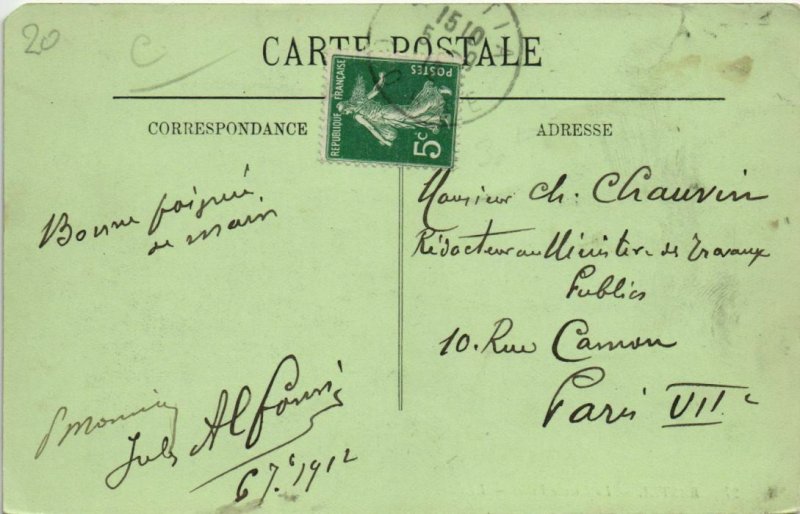 20
C
CARTE POSTALE
15 10
RÉPUBLIQUE FRANÇAISE
POSTES
5c
CORRESPONDANCE
ADRESSE
Bonne poignée
de main
Jules
Monsieur Ch. Chauvin
Rédacteur au Ministère des Travaux
Publics
10. Rue Camou
Paris VIIe